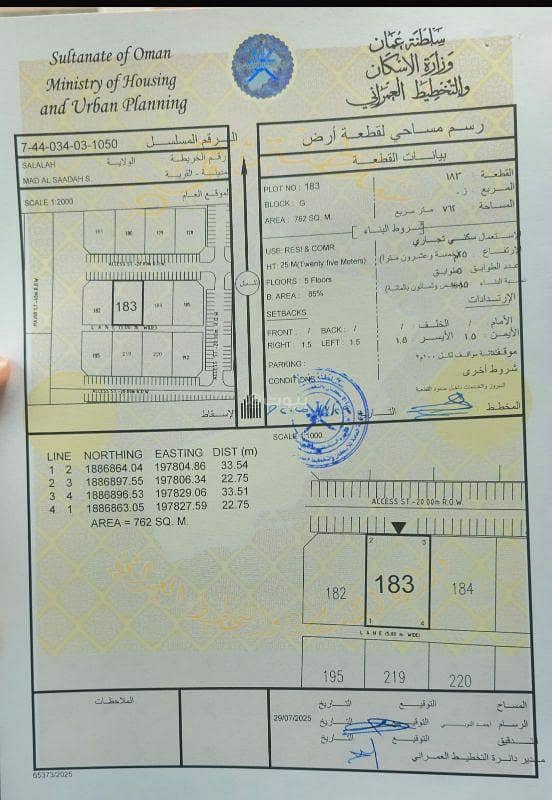 Sultanate of Oman
Ministry of Housing
and Urban Planning
سلطنة عمان
وزارة الإسكان
والتخطيط العمراني
7-44-034-03-1050 الرقم المسلسل
SALALAH الولاية رقم الخريطة
MAD AL SAADAH S. المدينة - القرية
SCALE 1:2000 الموقع العام
181 180 179 178
ACCESS ST -20.00m R.O.W.
182 183
LANE (5.00 m. WIDE)
195 219 220
الإسقاط
الشمال
رسم مساحي لقطعة أرض
بيانات القطعة
PLOT NO : 183 القطعة ١٨٣
BLOCK : G المربع ز
AREA : 762 SQ. M. المساحة ٧٦٢ متر مربع
شروط البناء
USE: RESI & COMR الاستعمال سكني تجاري
HT: 25 M(Twenty five Meters) الارتفاع ٢٥ (خمسة وعشرون مترا)
FLOORS : 5 Floors عدد الطوابق ٥ طوابق
B. AREA : 85% نسبة البناء
SETBACKS الارتدادات
FRONT : / BACK : / الأمام / الخلف /
RIGHT 1.5 LEFT 1.5 الأيمن ١.٥ الأيسر ١.٥
PARKING :
CONDITIONS شروط أخرى
البروز والخدمات داخل حدود القطعة
المخطط التاريخ
بيوت
SCALE 1:1000
LINE NORTHING EASTING DIST (m)
1 2 1886864.04 197804.86 33.54
2 3 1886897.55 197806.34 22.75
3 4 1886896.53 197829.06 33.51
4 1 1886863.05 197827.59 22.75
AREA = 762 SQ. M.
ACCESS ST -20.00m R.O.W.
2 3
182 183 184
1 4
LANE (5.00 m. WIDE)
195 219 220
الملاحظات
المساح التوقيع التاريخ
الرسام التوقيع التاريخ 29/07/2025
التدقيق التوقيع التاريخ
مدير دائرة التخطيط العمراني
65373/2025